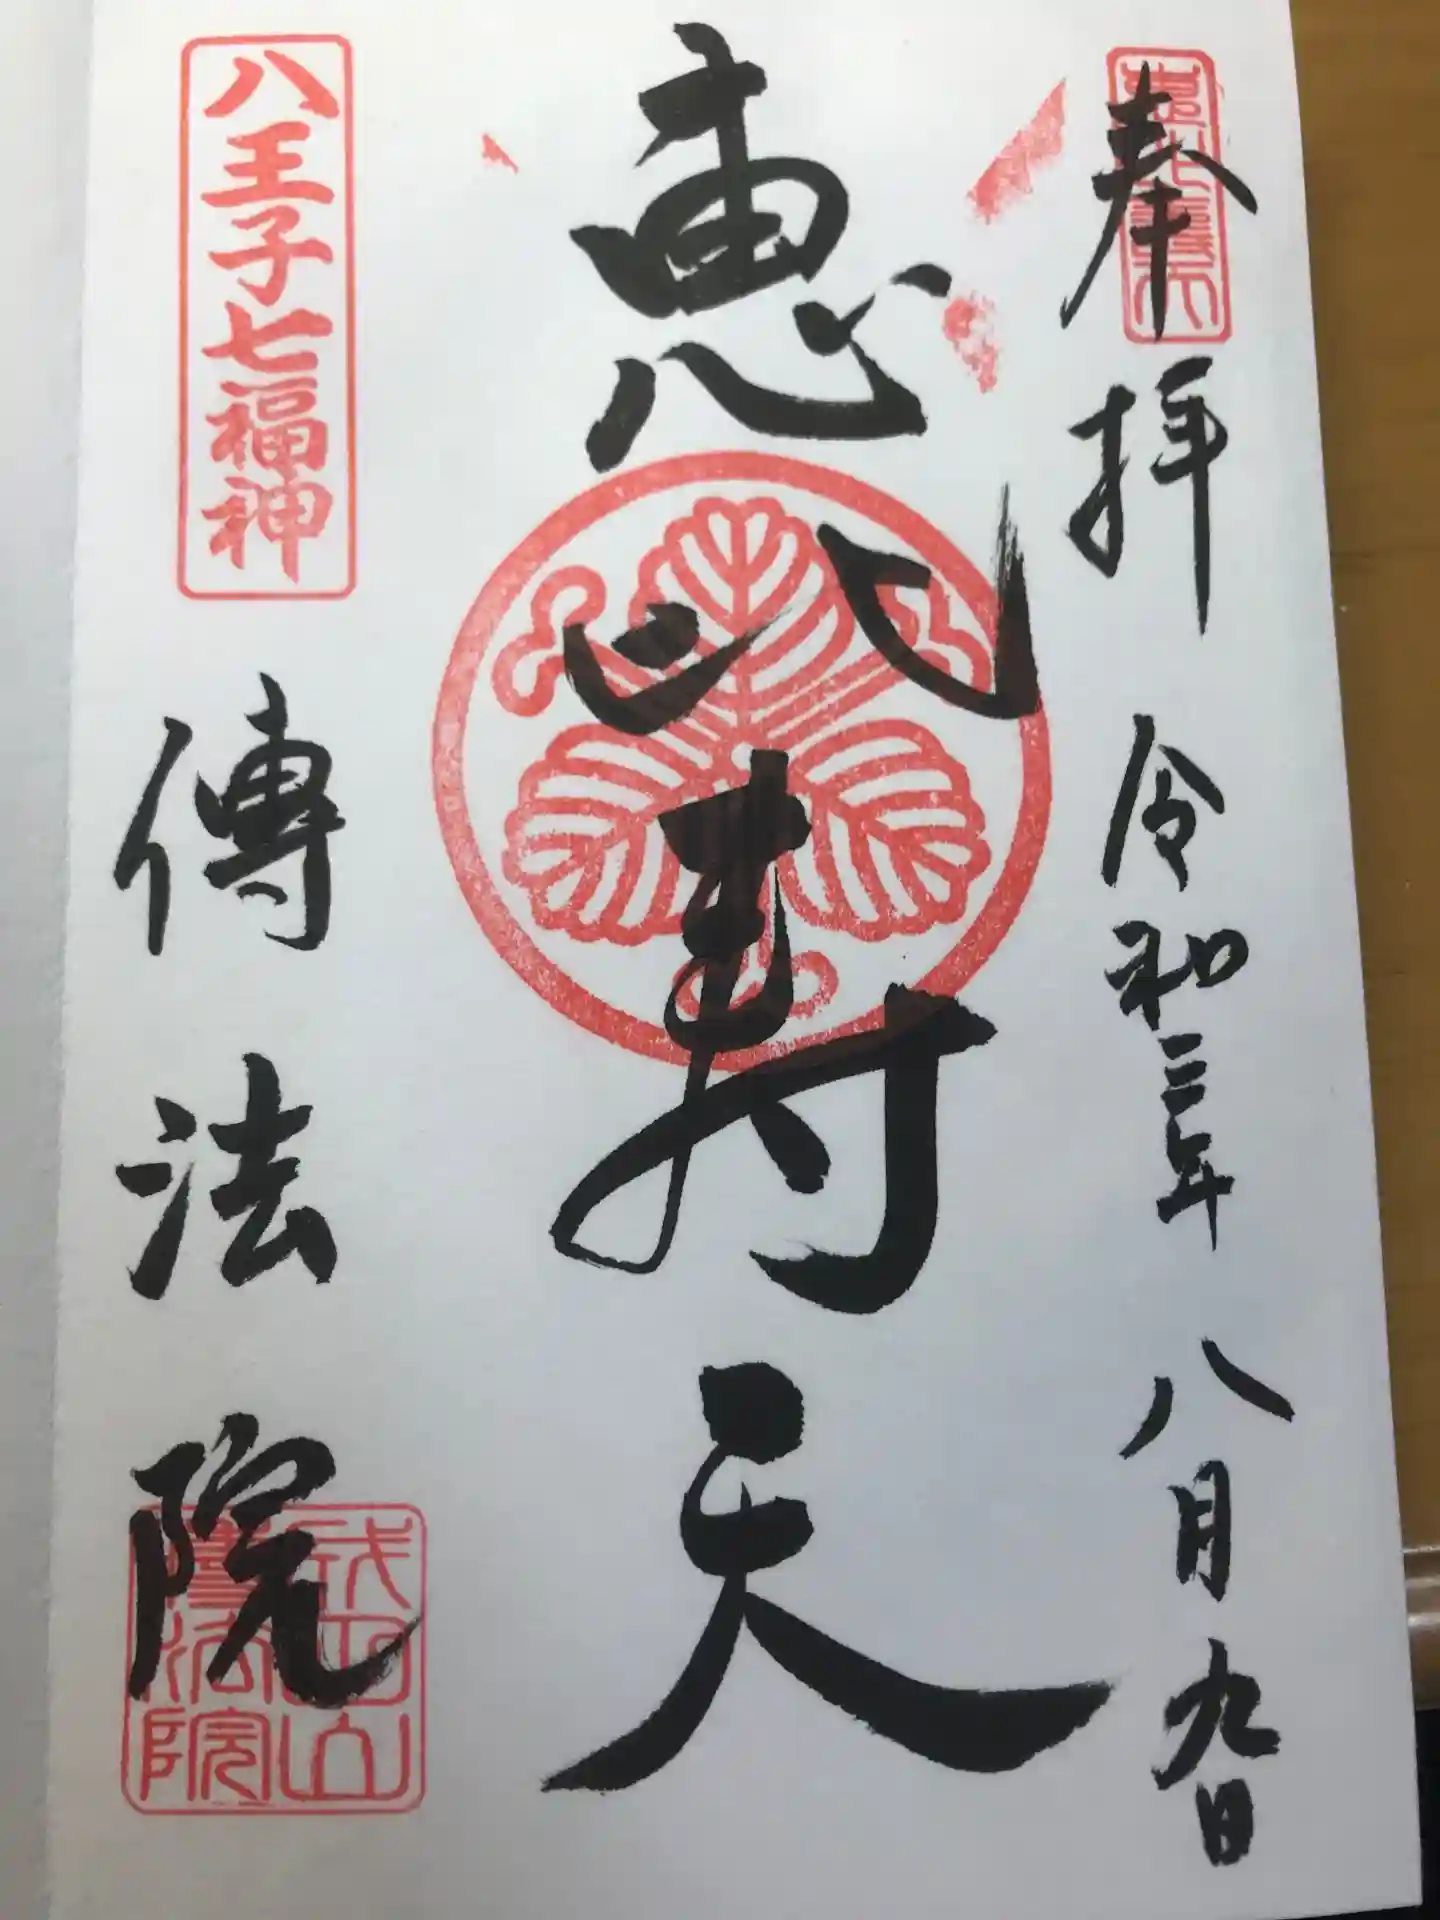 奉拝 令和三年 八月九日
恵比寿天
八王子七福神
傳法院
成田山
傳法院